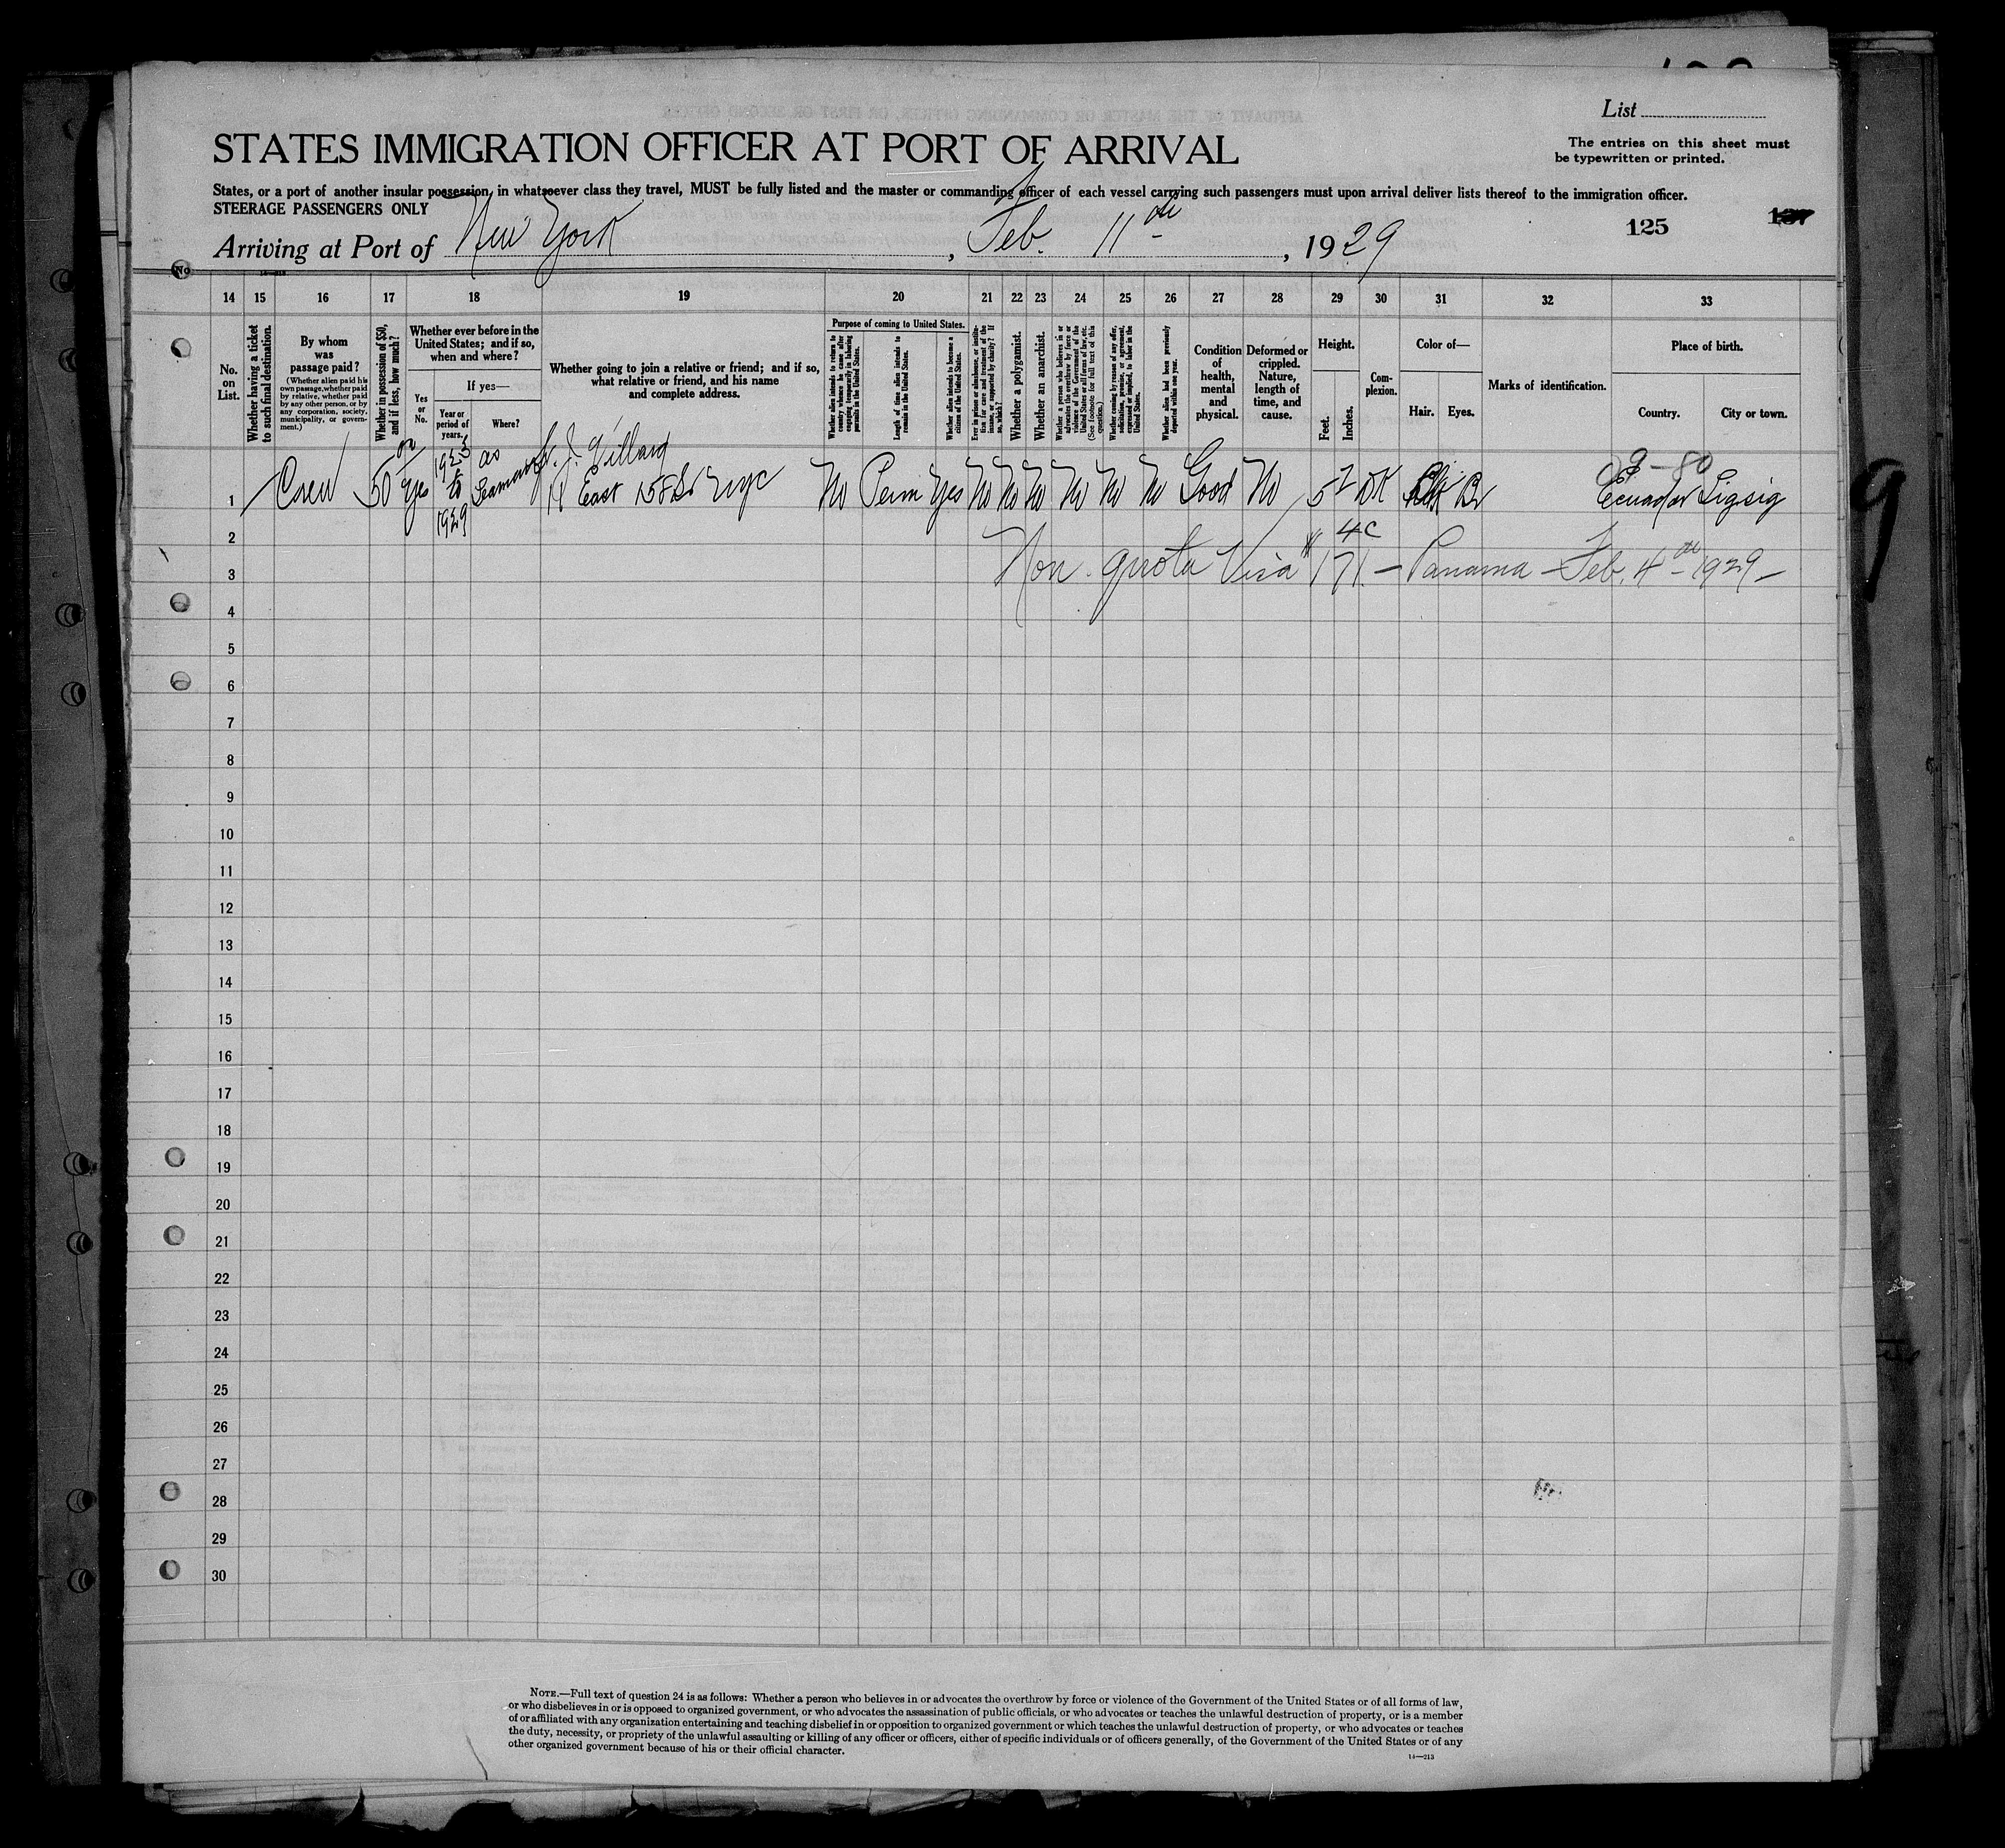 List
STATES IMMIGRATION OFFICER AT PORT OF ARRIVAL
The entries on this sheet must
be typewritten or printed.
States, or a port of another insular possession, in whatsoever class they travel, MUST be fully listed and the master or commanding officer of each vessel carrying such passengers must upon arrival deliver lists thereof to the immigration officer.
STEERAGE PASSENGERS ONLY
Arriving at Port of New York, Feb. 11th, 1929
125
14 15 16 17 18 19 20 21 22 23 24 25 26 27 28 29 30 31 32 33
No. on List.
Whether having a ticket to such final destination.
By whom was passage paid?
(Whether alien paid his own passage, whether paid by relative, whether paid by any other person, or by any corporation, society, municipality, or government.)
Whether in possession of $50, and if less, how much?
Whether ever before in the United States; and if so, when and where?
Yes or No.
If yes—
Year or period of years.
Where?
Whether going to join a relative or friend; and if so, what relative or friend, and his name and complete address.
Purpose of coming to United States.
Whether alien intends to return to country whence he came after engaging temporarily in laboring pursuits in the United States.
Length of time alien intends to remain in the United States.
Whether alien intends to become a citizen of the United States.
Ever in prison or almshouse, or institution for care and treatment of the insane, or supported by charity? If so, which?
Whether a polygamist.
Whether an anarchist.
Whether a person who believes in or advocates the overthrow by force or violence of the Government of the United States or all forms of law, etc. (See footnote for full text of this question.)
Whether coming by reason of any offer, solicitation, promise, or agreement, expressed or implied, to labor in the United States.
Whether alien had been previously deported within one year.
Condition of health, mental and physical.
Deformed or crippled. Nature, length of time, and cause.
Height.
Feet.
Inches.
Complexion.
Color of—
Hair.
Eyes.
Marks of identification.
Place of birth.
Country.
City or town.
1 Crew 50 00 Yes 1923 to 1929 as Seaman J. Villard East 158 St NYC No Perm Yes No No No No No No Good No 5 2 DK Blk Br Ecuador Sigsig
2 4c
3 Non quota Visa # 171 - Panama - Feb. 4th 1929 -
4
5
6
7
8
9
10
11
12
13
14
15
16
17
18
19
20
21
22
23
24
25
26
27
28
29
30
9
NOTE.—Full text of question 24 is as follows: Whether a person who believes in or advocates the overthrow by force or violence of the Government of the United States or of all forms of law,
or who disbelieves in or is opposed to organized government, or who advocates the assassination of public officials, or who advocates or teaches the unlawful destruction of property, or is a member
of or affiliated with any organization entertaining and teaching disbelief in or opposition to organized government or which teaches the unlawful destruction of property, or who advocates or teaches
the duty, necessity, or propriety of the unlawful assaulting or killing of any officer or officers, either of specific individuals or of officers generally, of the Government of the United States or of any
other organized government because of his or their official character.
14—213